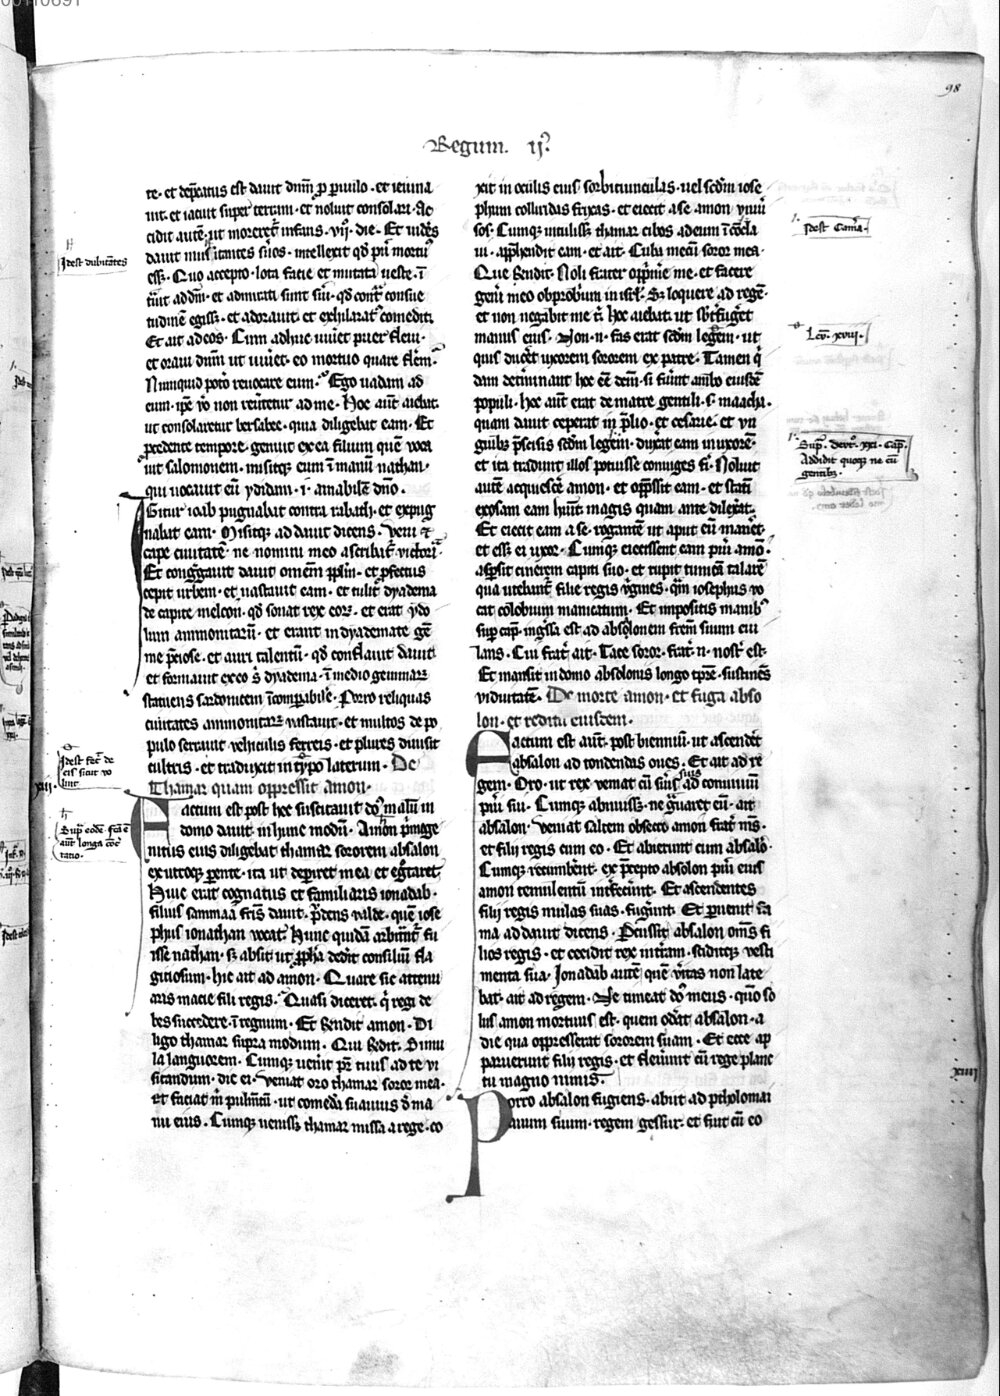 98
Regum. ij.
te. et dep̄catus est dauit dn̄m p̄ p̄uulo. et ieiuna
uit. et iacuit super terram. et noluit consolari. Ac
cidit autē. ut moreret᷑ infans. vij. die. Et uidēs
dauit musitantes suos. intellexit qd̓ pu̓ mortu᷒
essꝫ. Quo accepto. lota facie et mutata ueste. ī
tuit
et adorauit. et exhilarat᷒ comedit.
Et ait ad eos. Cum adhuc uiuet puer fleui.
et oraui dn̄m ut uiuet. eo mortuo quare flem᷒.
Nunquid pot̓o reuocare eum. Ego uadam ad
eum. ip̄e u̓o non reu̓tetur ad me. Hoc aūt aiebat.
ut consolaretur bersabee. quia diligebat eam. Et
p̄cedente tempore. genuit ex ea filium quē voca
uit salomonem. misitqꝫ eum ī manū nathan.
qui uocauit eū ydidam. i. amabilē dn̄o.
Igitur ioab pugnabat contra rabath. et expug
nabat eam. Misitqꝫ ad dauit dicens. Veni et
cape ciuitatē. ne nomini meo ascribat᷑ victoria.
Et congregauit dauit omēm pp̄lm. et p̄fectus
cepit urbem. et uastauit eam. et tulit dyadema
de capite melcon. qd̓ sonat rex eorꝫ. et erat ydo
lum ammonitarū. et erant in dyademate gē
me p̄ciose. et auri talentū. qd̓ conflauit dauit
et formauit ex eo s̓ dyadema. ī medio gemmarꝫ
statuens sardonicem īcomparabilē. Porro reliquas
ciuitates ammonitarꝫ uastauit. et multos de po
pulo serrauit vehiculis ferreis. et plures diuisit
cultris. et traduxit in typo laterum. De
Thamar quam oppressit amon.
Factum est post hec suscitauit dō malū in
domo dauit in hunc modū. Amon p̄moge
nitus eius diligebat thamar sororem absalon
ex utroqꝫ parente. ita ut deperiret in ea et egrotaret.
Huic erat cognatus et familiaris ionadab.
filius sammaa fr̄is dauit. prudens valde. quē iose
phus ionathan vocat. Hunc quidā arbitrant᷑ fu
isse nathan. sꝫ absit ut ppħa dedit consiliū fla
giciosum. hic ait ad amon. Quare sic attenu
aris macie fili regis. Quasi diceret. q̄ regi de
bes succedere ī regnum. Et respondit amon. Di
ligo thamar supra modum. Qui respondit. Simu
la languorem. Cumqꝫ uenit pr̄ tuus ad te vi
sitandum. dic ei. Veniat oro thamar soror mea.
et faciat m̄ pulmentū. ut comedā suauius d̓ ma
nu eius. Cumqꝫ uenissꝫ thamar missa a rege. co
xit in oculis eius sorbitiunculas. uel scdm̄ iose
phum colliridas frixas. et eiecit a se amon vniu̓
sos. Cumqꝫ intulissꝫ thamar cibos ad eum ī cōcla
ui. app̄hendit eam. et ait. Cuba mecū soror mea.
Que respondit. Noli frater opprim̓e me. et facere
gen̓i meo obprobrium in isrl̄. Sꝫ loquere ad regē.
et non negabit me t̓. hoc aiebat. ut sb̓terfuget
manus eius. Non. n. fas erat scdm̄ legem. ut
quis duceret uxorem sororem ex patre. Tamen q̓
dam determinant hoc eē dem̄. si fuerint ambo eiusdē
populi. hoc aūt erat de matre gentili. s. maacha.
quam dauit ceperat in p̄lio. et cesarie. et vn
guibꝫ p̄scisis scdm̄ legem. duxit eam in uxorē.
et ita tradunt illos potuisse coniuges fi̓. Noluit
autē acquiescē amon. et opp̄ssit eam. et statī
exosam eam habuit. magis quam ante dilexat.
Et eiecit eam a se. rogantē ut aput eū manet.
et essꝫ ei uxor. Cumqꝫ eiecissent eam pueri amō.
asp̄sit cinerem capiti suo. et rupit tunicā talarē
qua utebant᷑ filie regis v̓gines. qm̄ iosephus vo
cat colobium manicatum. Et impositis manibꝫ
sup cap̄. ingressa est ad absalonem frēm suum eiu
lans. Cui frat̓. ait. Tace soror. frat̓. n. nost̓ est.
Et mansit in domo absalonis longo tp̄re. sustinēs
viduitatē. De morte amon. et fuga abso
lon. et reditu eiusdem.
Factum est aūt. post bienniū. ut ascendet̓
absalon ad tondendas oues. Et ait ad re
gem. Oro. ut rex veniat cū suis ad conuiuiū
pueri sui. Cumqꝫ abnuissꝫ. ne grauaret cū. ait
absalon. veniat saltem obsecro amon frat̓ m̄s.
et filii regis cum eo. Et abierunt cum absalō.
Cumqꝫ recumberēt. ex p̄cepto absolon pueri eius
amon temulentum interfecunt. Et ascendentes
filii regis mulas suas. fugerunt. Et p̄uenit fa
ma ad dauit dicens. Percussit absalon om̄s fi
lios regis. et cecidit rex in terram. sciditqꝫ vesti
menta sua. Ionadab autē quē v̓itas non late
bat. ait ad regem. Ne timeat dō meus. quō so
lus amon mortuus est. quem od̓at absalon. a
die qua oppresserat sororem suam. Et ecce ap
paruerunt filii regis. et fleuunt cū rege planc
tu magno nimis.
Porro absalon fugiens. abiit ad ptholomai
auum suum. regem gessur. et fuit cū eo
Idest dubitātes
Idest fec̄ de
eis sicut vo
luit
xiij.
Sup̄ eodē. sc̄a ē
aūt longa cōc
ratio.
Idest camā.
Leu̓. xviij.
Sup̄. deut̓o. xxi. cap̄.
Addidit quoqꝫ ne cū
gentibꝫ.
xiiij